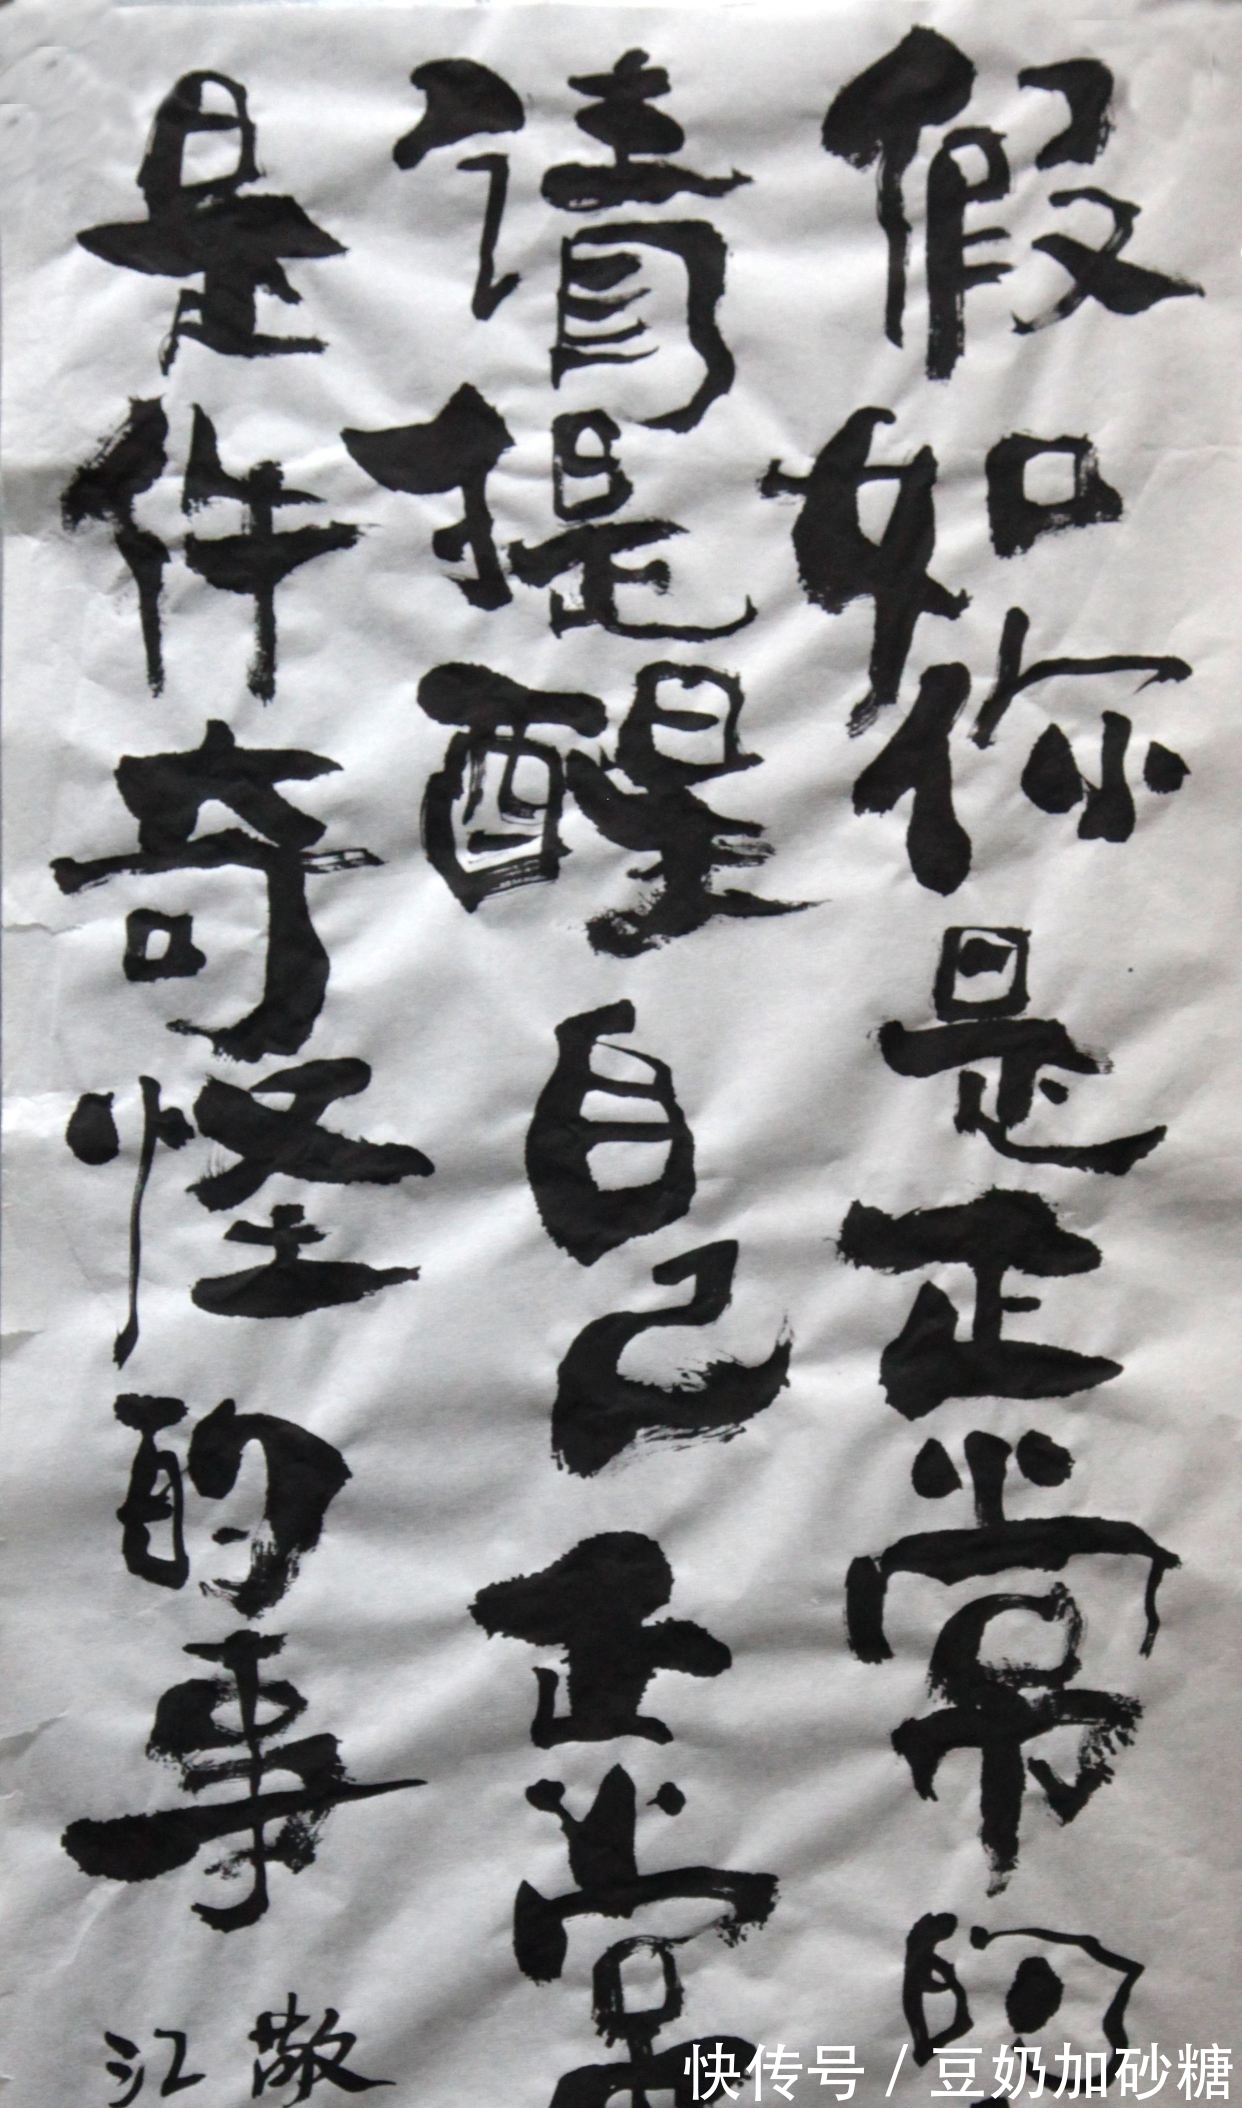 假如你是正常的
请提醒自己正常
是件奇怪的事
敬
江
快传号 / 豆奶加砂糖